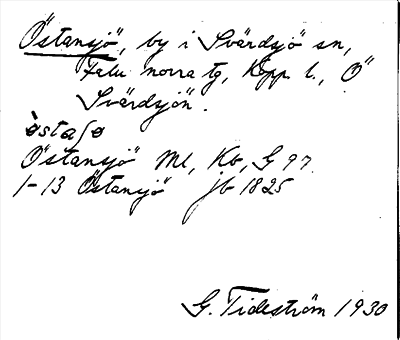 Östansjö, by i Svärdsjö sn,
Falu norra tg, Kopp. l., Ö
Svärdsjön.
òstaʃø
Östansjö Ml, Kb, G 97.
1-13 Östansjö jb 1825
G. Tideström 1930